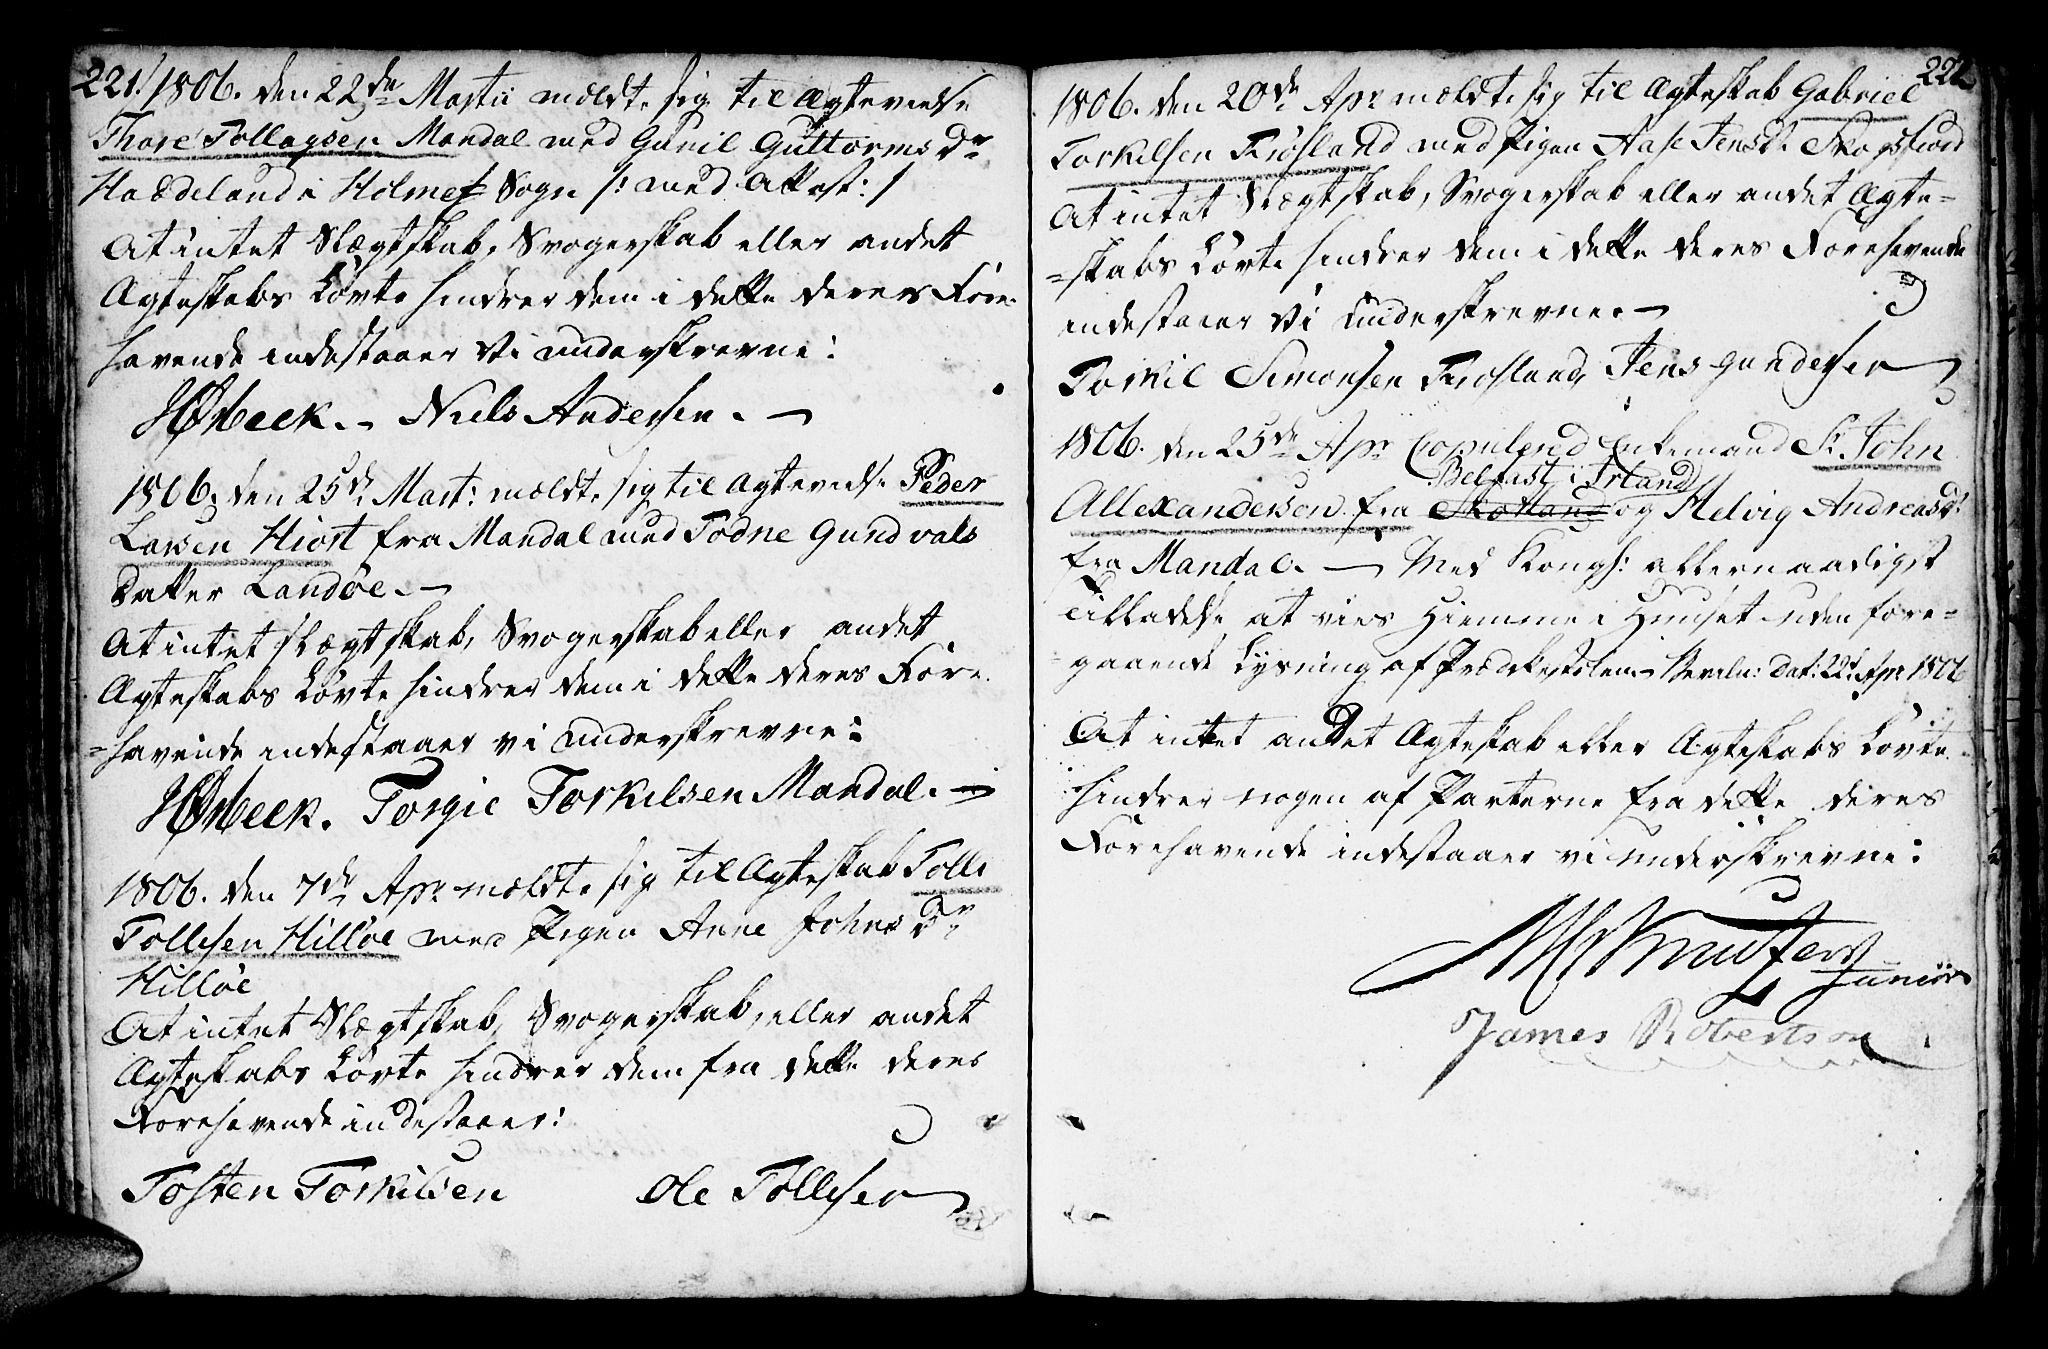 221. 1806. den 22de Martii meldte sig til Ægtevielse
Thore Tollagsen Mandal med Gunil Guttorms Dr
Haadeland i Holmes Sogn /: med Attest: /
At intet Slægtskab, Svogerskab eller andet
Ægteskabs Løvte hindrer dem i dette deres Fore-
havende indestaaer Vi underskrevne:
HØrbeck. Niels Andersen.
1806. den 25de Mart: meldte sig til Ægtevielse Peder
Larsen Hiort fra Mandal med Todne Gundvals
Datter Landøe.
At intet Slægtskab, Svogerskab eller andet
Ægteskabs Løvte hindrer dem i dette deres Fore-
=havende indestaaer vi underskrevne:
HØrbeck. Torgie Torkilsen Mandal.
1806. den 7de Apr meldte sig til Ægteskab Tolli
Tollisen Hilløe med Pigen Anne Johns Dr
Hilløe
At intet Slægtskab, Svogerskab, eller andet
Ægteskabs Løvte hindrer dem fra dette deres
Forehavende indestaaer:
Tosten Torkilsen Ole Tollisen
222
1806. den 20de Apr meldte sig til Ægteskab Gabriel
Torkilsen Frøsland med Pigen Aase Jensdr Skogsfiord
At intet Slægtskab, Svogerskab eller andet Ægte-
=skabs Løvte hindrer dem i dette deres Forehavende
indestaaer Vi underskrevne.
Torkil Simonsen Frøsland, Jens Gundersen
1806. den 25de Apr Copulerd Enkemand Sr. John
Belfast i Irland
Allexanderson fra Skotland og Helvig Andreasdr
fra Mandal. Med Kongl: allernaadigst
Tilladelse at vies Hiemme i Huuset uden fore-
gaaende Lysning af Prædikestolen. Beviln: Dat: 22de Apr 1806
At intet andet Ægteskab eller Ægteskabs Løvte
hindrer nogen af Parterne fra dette deres
Forehavende indestaaer vi underskrevne:
Knutzen
Junior
James Robertson